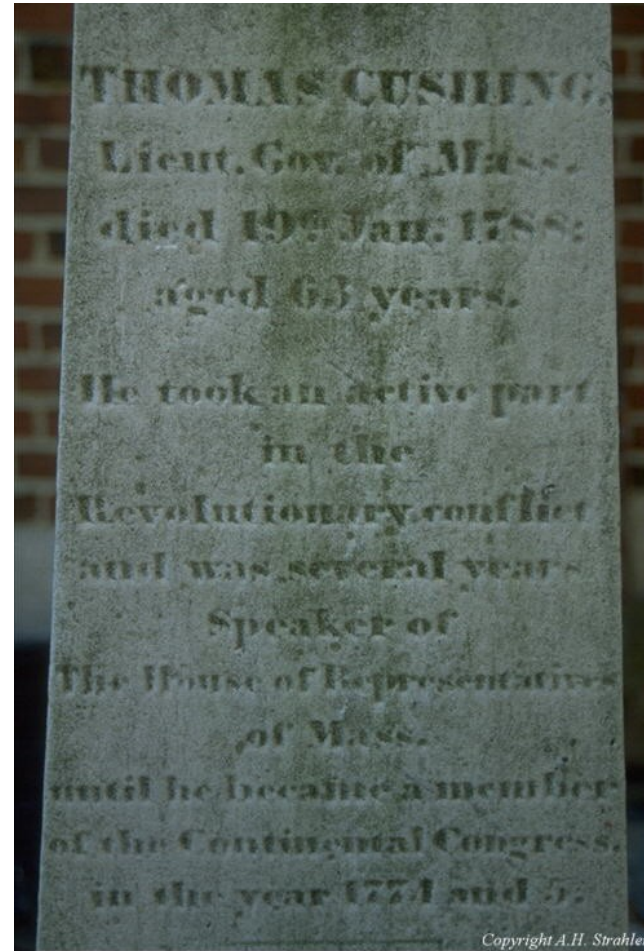 THOMAS CUSHING,
Lieut. Gov. of Mass.
died 19th Jan: 1788;
aged 63 years.
He took an active part
in the
Revolutionary conflict
and was several years
Speaker of
The House of Representatives
of Mass.
until he became a member
of the Continental Congress,
in the year 1774 and 5.
Copyright A.H. Strahle